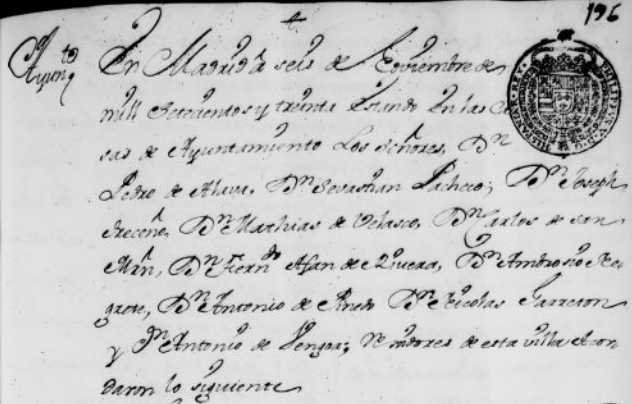 196
Ayunto
En Madrid a seis de Septiembre de
mill Setecientos y treinta estando en las Ca
sas de Ayuntamiento Los Señores, Dn
Pedro de Alava, Dn Sevastian Pacheco; Dn Joseph
Dn Mathias de Velasco, Dn Carlos de San
Mrn, Dn Ferndo Afan de Rivera, Dn Ambrosio Ne
grete, Dn Antonio de Pinedo Dn Nicolas Garreton
y Dn Antonio de Vengoa; Rexidores de esta villa Acor
daron lo siguiente